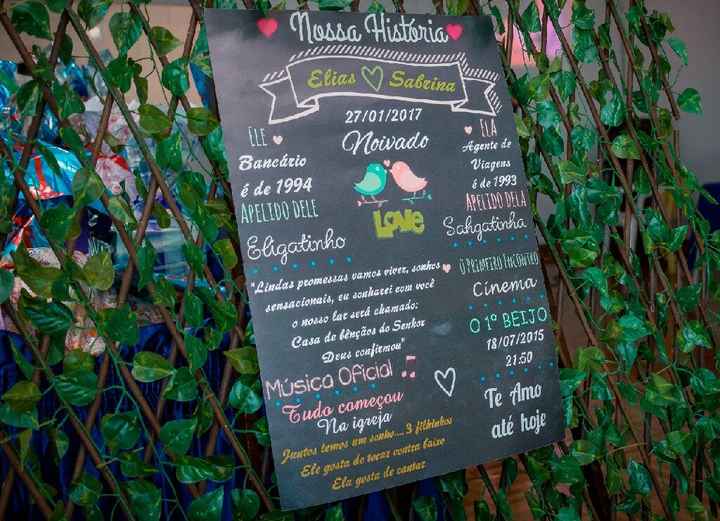 Nossa História
Elias Sabrina
27/01/2017
Noivado
ELE
Bancário
é de 1994
APELIDO DELE
Eligatinho
ELA
Agente de
Viagens
é de 1993
APELIDO DELA
Sahgatinha
LOVE
"Lindas promessas vamos viver, sonhos
sensacionais, eu sonharei com você
o nosso lar será chamado:
Casa de bênçãos do Senhor
Deus confirmou"
O PRIMEIRO ENCONTRO
Cinema
O 1º BEIJO
18/07/2015
21:50
Música Oficial
Tudo começou
Na igreja
Te Amo
até hoje
Juntos temos um sonho... 3 filhinhos
Ele gosta de tocar contra baixo
Ela gosta de cantar